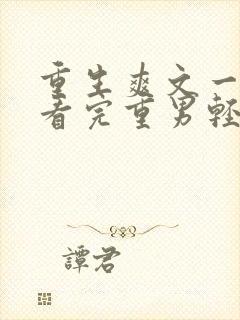 重生爽文一
看完重男輕
譚君